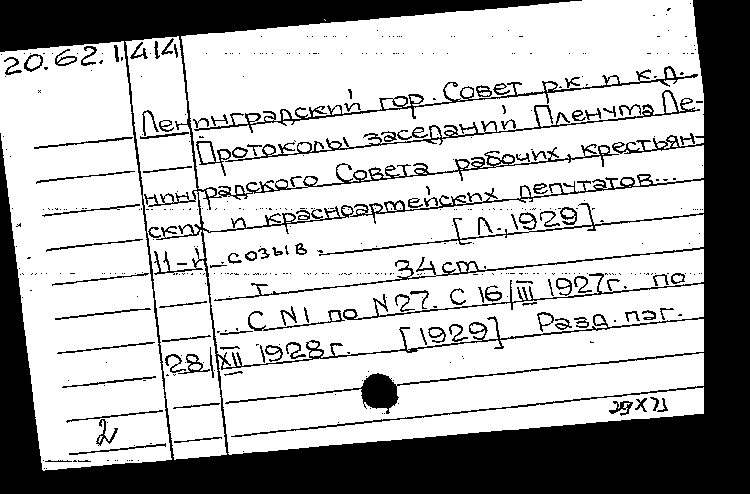 20.62.1.414
Ленинградский гор. Совет р.к. и к.д.
Протоколы заседаний Пленума Ле-
нинградского Совета рабочих, крестьян-
ских и красноармейских депутатов...
11-й созыв. [Л., 1929].
т. 34 см.
... С N1 по N27. С 16/III 1927г. по
28/XII 1928г. [1929] Разд. паг.
2
29 X 71